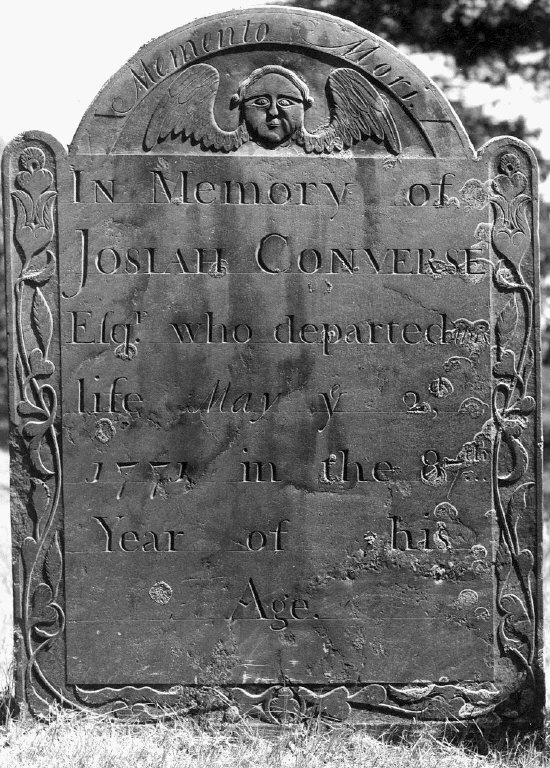 Memento Mori.
In Memory of
Josiah Converse
Eſqʳ. who departed this
life May yᵉ 2ᵈ,
1771 in the 87ᵗʰ
Year of his
Age.